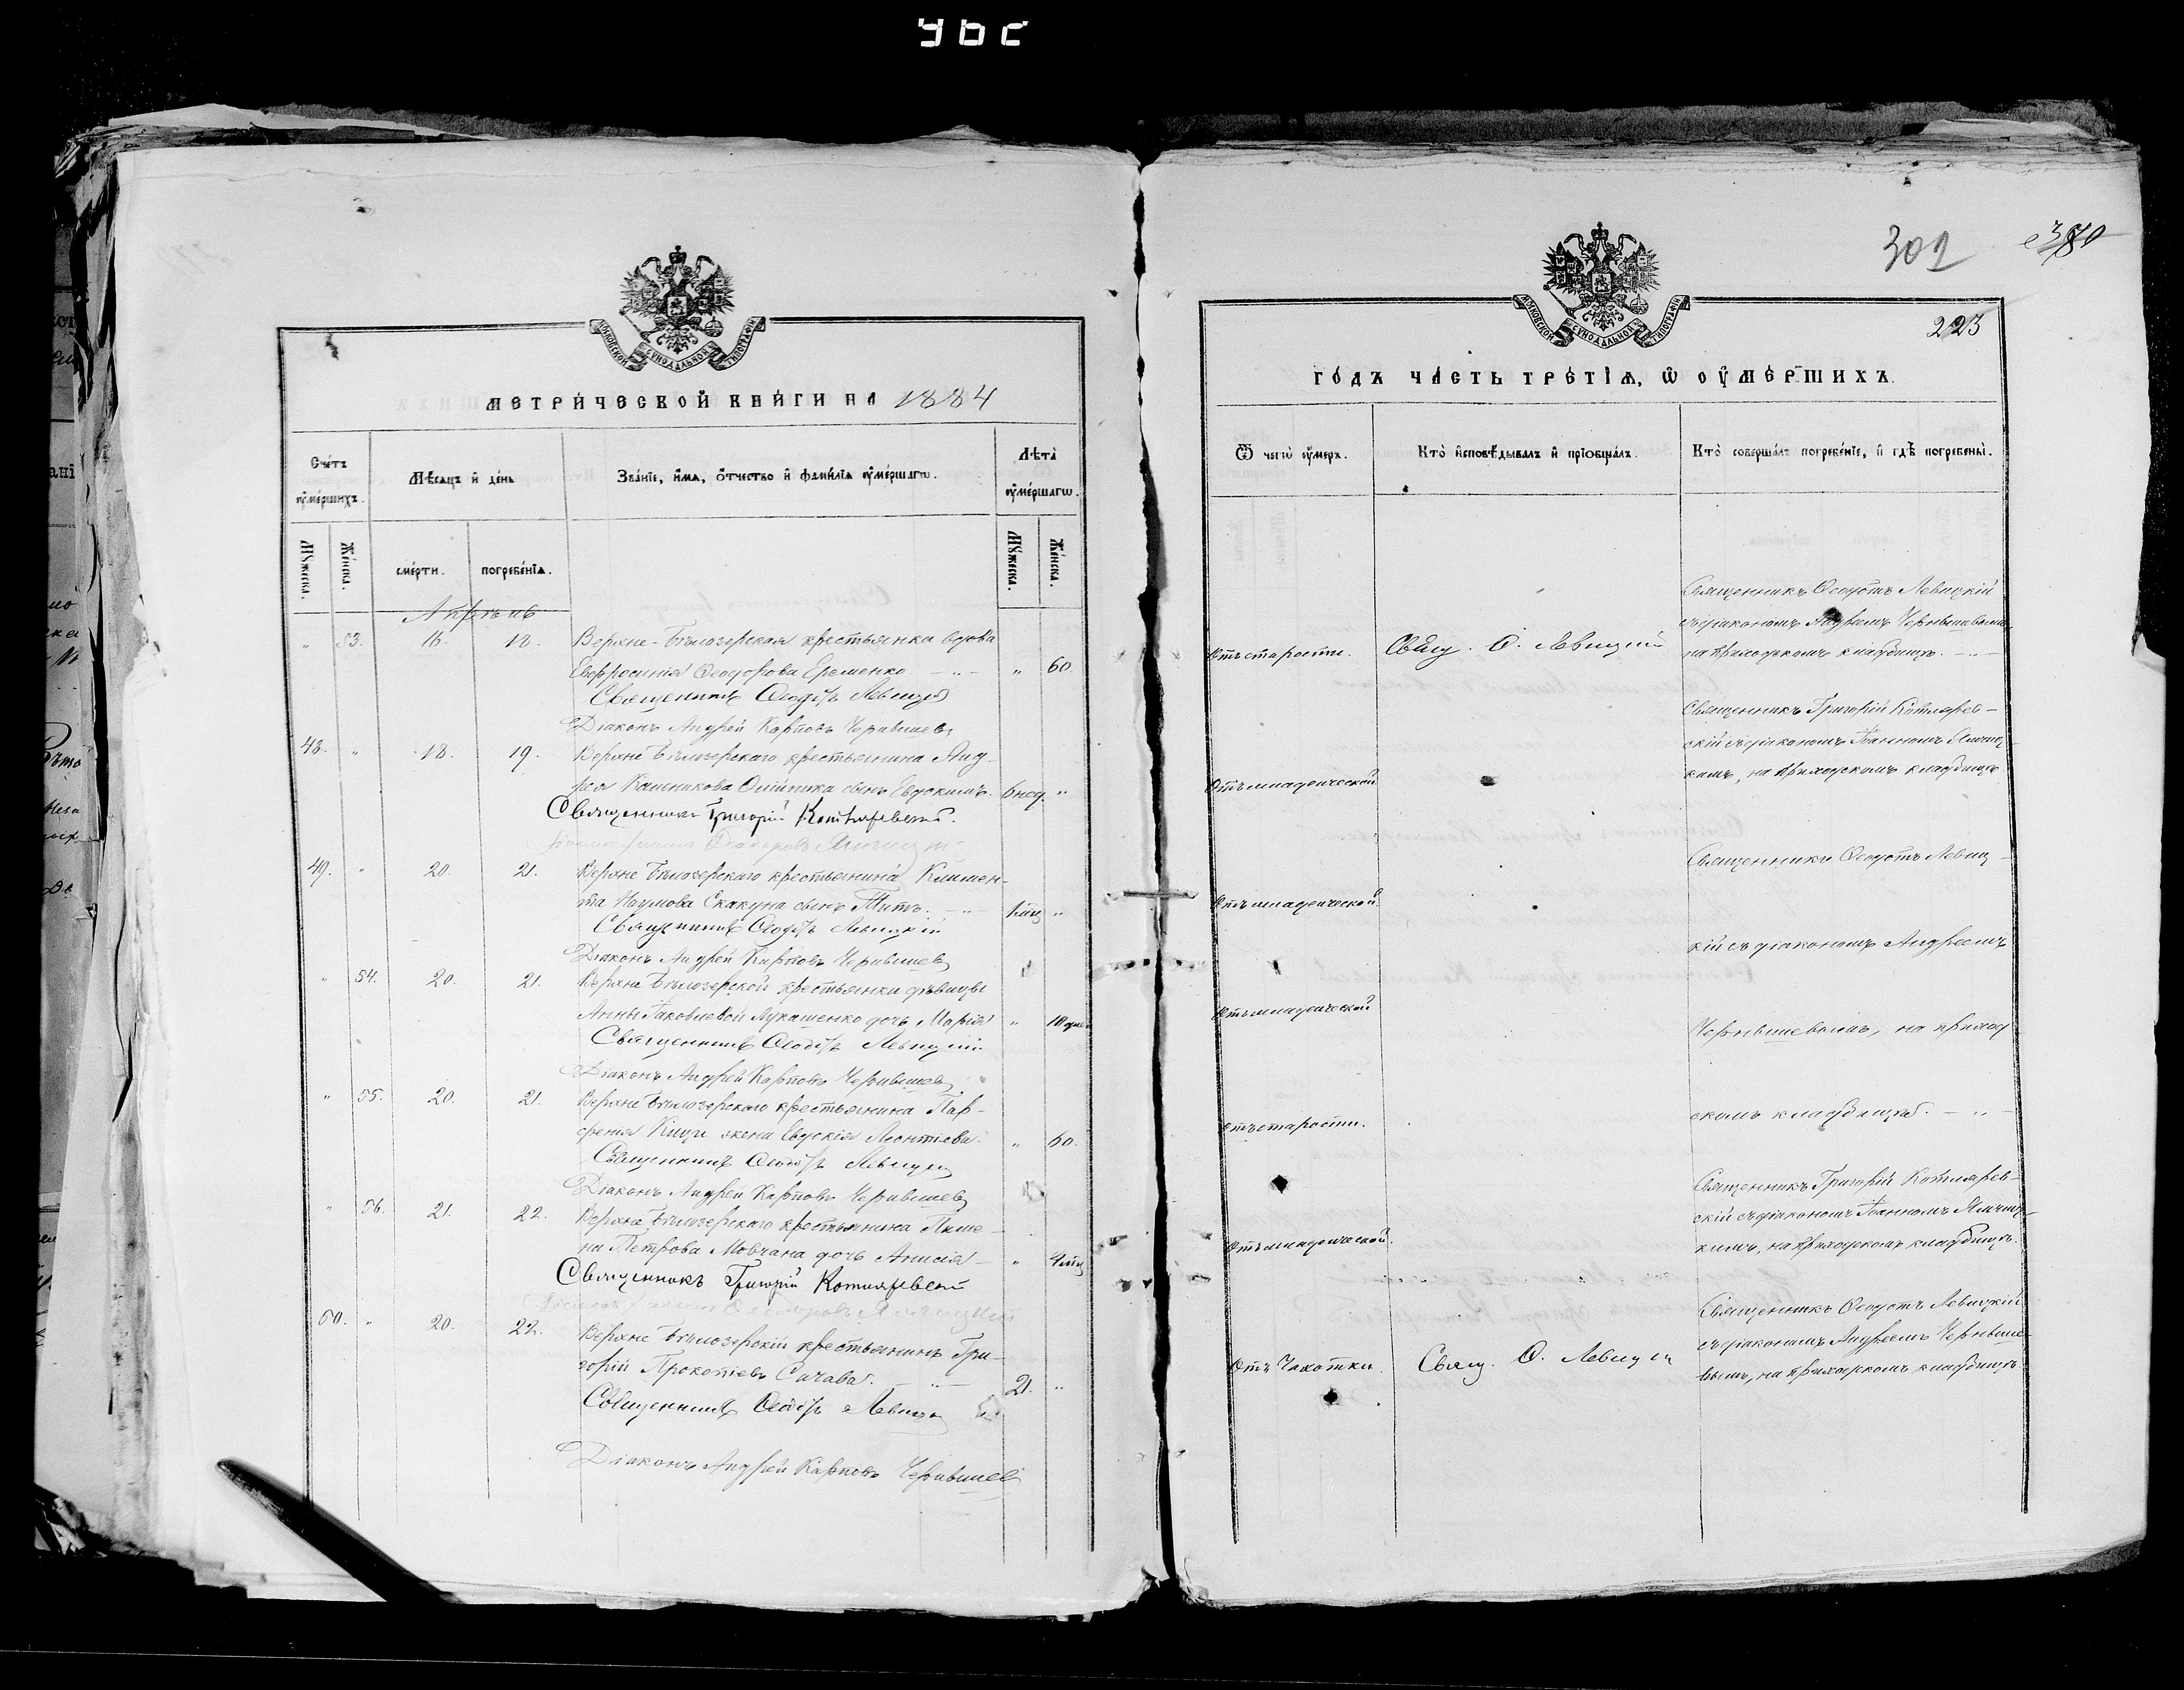 302 380
223
МОСКОВСКОЙ СѴНОДАЛЬНОЙ ТИПОГРАФІИ
МЕТРИ́ЧЕСКОЙ КНИ́ГИ НА 1884
Сче́тъ ᲂу҆ме́ршихъ.
Мѣ́сяцъ и҆ де́нь
Зва́нїе, и҆́мѧ, ѻ҆́тчество и҆ фами́лїѧ ᲂу҆ме́ршагѡ.
Лѣ́та ᲂу҆ме́ршагѡ.
Мꙋ́жеска.
Же́нска.
сме́рти.
погребе́нїѧ.
Мꙋ́жеска.
Же́нска.
Апрѣль
" 53. 16. 18. Верхне-Бѣлозерская крестьянка вдова
Евфросинія Ѳеодорова Еременко — " — " 60.
Священникъ Ѳеодотъ Левицкій
Діаконъ Андрей Карповъ Чернышев
48. " 18. 19. Верхне Бѣлозерскаго крестьянина Анд-
рея Олійника сынъ Евдокимъ. 6 нед. "
Священникъ Григорій Котляревскій.
49. " 20. 21. Верхне Бѣлозерскаго крестьянина Климен-
та Наумова Скакуна сынъ Титъ. — " — 1 мц "
Священникъ Ѳеодотъ Левицкій
Діаконъ Андрей Карповъ Чернышев
" 54. 20. 21. Верхне Бѣлозерской крестьянки дѣвицы
Анны Іаковлевой Лукашенко дочь Марія " 10 дней
Священникъ Ѳеодотъ Левицкій
Діаконъ Андрей Карповъ Чернышев
" 55. 20. 21. Верхне Бѣлозерскаго крестьянина Пар-
фенія жена Евдокія Леонтіева. " 60.
Священникъ Ѳеодотъ Левицкій
Діаконъ Андрей Карповъ Чернышев
" 56. 21. 22. Верхне Бѣлозерскаго крестьянина Пиме-
на Петрова Мовчана дочь Анисія — " 4 мц
Священникъ Григорій Котляревскій
50. " 20. 22. Верхне Бѣлозерскій крестьянинъ Гри-
горій Прокопіевъ Сичава. — " — 21. "
Священникъ Ѳеодотъ Левицкій
Діаконъ Андрей Карповъ Чернышев
МОСКОВСКОЙ СѴНОДАЛЬНОЙ ТИПОГРАФІИ
ГО́ДЪ ЧА́СТЬ ТРЕ́ТЇѦ, Ѡ҆ ОУ҆МЕ́РШИХЪ.
Ѿ чегѡ̀ ᲂу҆́меръ.
Кто̀ и҆сповѣ́дывалъ и҆ прїѡбща́лъ.
Кто̀ соверша́лъ погребе́нїе, и҆ гдѣ̀ погребены̀.
Отъ старости. Свящ. Ѳ. Левицкій
Священникъ Ѳеодотъ Левицкій
съ діакономъ Андреемъ Чернышевымъ,
на приходскомъ кладбищѣ. — " —
Отъ младенческой
Священникъ Григорій Котлярев-
скій съ діакономъ Іоанномъ Ямчиц-
кимъ, на приходскомъ кладбищѣ
Отъ младенческой.
Священникъ Ѳеодотъ Левиц-
кій съ діакономъ Андреемъ
Отъ младенческой
Чернышевымъ, на приход
Отъ старости.
скомъ кладбищѣ. — " —
Отъ младенческой.
Священникъ Григорій Котлярев-
скій съ діакономъ Іоанномъ Ямчиц-
кимъ, на приходскомъ кладбищѣ.
Отъ Чахотки. Свящ. Ѳ. Левицкій
Священникъ Ѳеодотъ Левицкій
съ діакономъ Андреемъ Черныше-
вымъ, на приходскомъ кладбищѣ